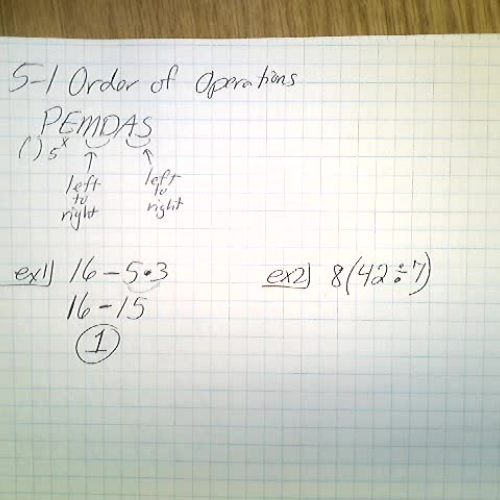 5-1 Order of Operations
PEMDAS
( ) 5ˣ
left to right
left to right
ex1) 16 - 5 • 3
16 - 15
1
ex2) 8(42 ÷ 7)